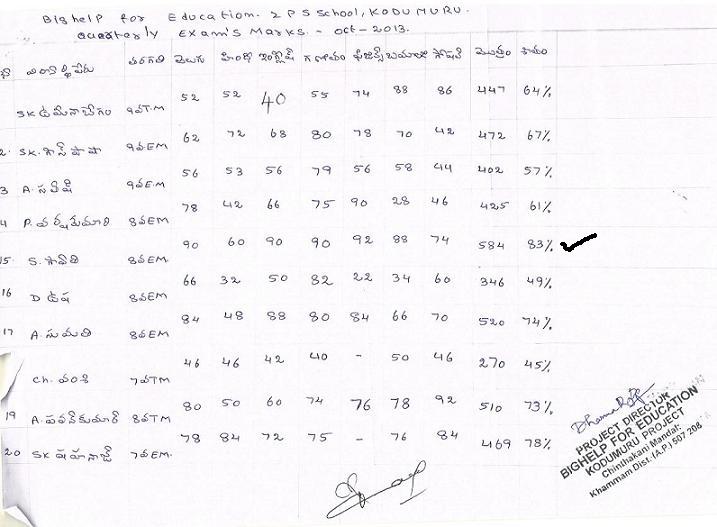 Bighelp for Education. Z P S School, KODUMURU.
Quarterly Exam's Marks. - Oct - 2013.
విద్యార్థిపేరు తరగతి తెలుగు హింది ఇంగ్లీష్ గణితం ఫిజిక్స్ బయాలజి సోషల్ మొత్తం శాతం
SK 9వT.M 52 52 40 55 74 88 86 447 64%
2. SK. 9వEM 62 72 68 80 78 70 42 472 67%
3 A. 9వE.M 56 53 56 79 56 58 44 402 57%
4 P. 8వEM 78 42 66 75 90 28 46 425 61%
15 S. 8వEM 90 60 90 90 92 88 74 584 83% ✓
16 D ఉష 8వEM 66 32 50 82 22 34 60 346 49%
17 A. సుమతి 8వEM 84 48 88 80 84 66 70 520 74%
Ch. వంశి 7వTM 46 46 42 40 - 50 46 270 45%
19 A. పవన్‌కుమార్ 8వTM 80 50 60 74 76 78 92 510 73%
20 SK షహనాజ్ 7వEM. 78 84 72 75 - 76 84 469 78%
PROJECT DIRECTOR
BIGHELP FOR EDUCATION
KODUMURU PROJECT
Chinthakani Mandal:
Khammam Dist. (A.P.) 507 208